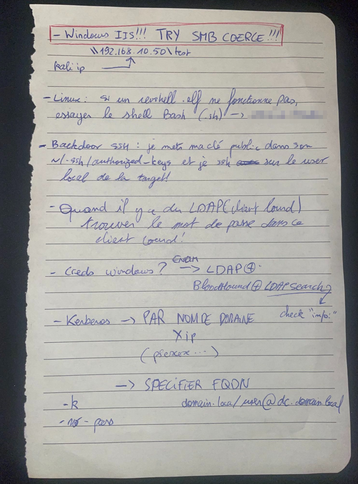 - Windows IIS!!! TRY SMB COERCE!!!
\\192.168.10.50\test
kali ip
- Linux: si un revshell .elf ne fonctionne pas,
essayer le shell Bash (.sh) ->
- Backdoor ssh: je mets ma clé public dans son
~/.ssh/authorized-keys et je ssh sur le user
local de la target!
- Quand il y a du LDAP (client lourd)
trouver le mot de passe dans ce
client lourd!
- Creds windows? -> LDAP
Bloodhound LDAPSearch
check "info"
- Kerberos -> PAR NOM DE DOMAINE
X ip
-> SPECIFIER FQDN
-k domain.local/user@dc.domain.local
-no-pass